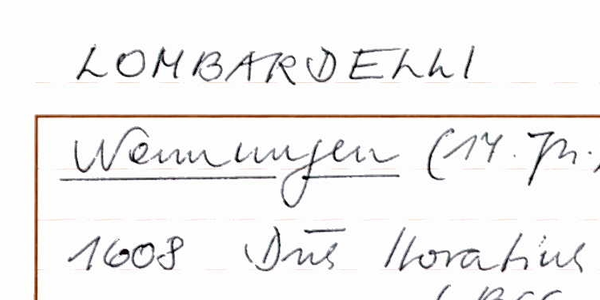 LOMBARDELLI
Nennungen (17. Jh.)
1608 Dn̄s Horatius